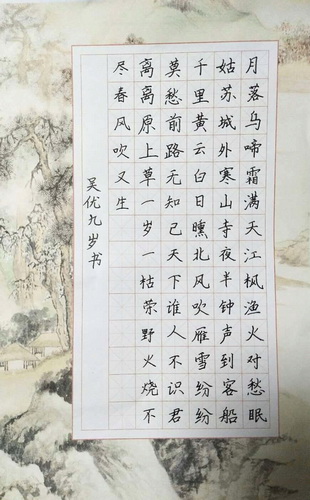 月落乌啼霜满天江枫渔火对愁眠
姑苏城外寒山寺夜半钟声到客船
千里黄云白日曛北风吹雁雪纷纷
莫愁前路无知己天下谁人不识君
离离原上草一岁一枯荣野火烧不
尽春风吹又生
吴优九岁书